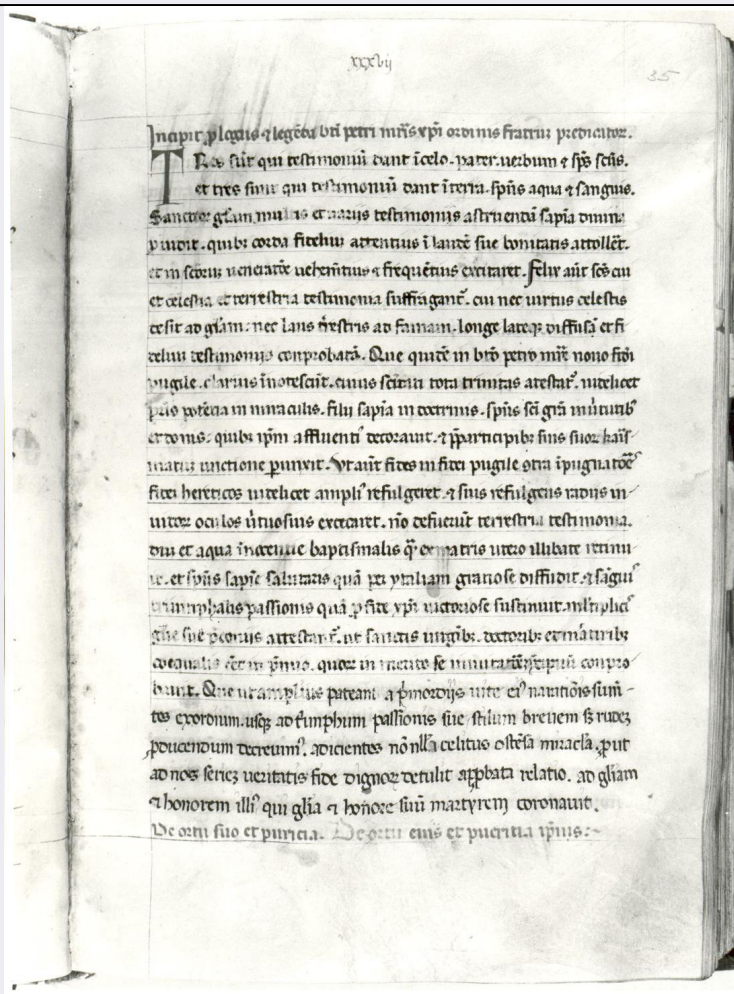 xxxvij
35
Incipit plogus ⁊ legēda btī petri mr̄is xp̄i ordinis fratrū predicator.
Tres sūt qui testimoniū dant ī celo. pater. uerbum ⁊ sp̄s sc̄us.
et tres sunt qui testimoniū dant ī terra. sp̄us aqua ⁊ sanguis.
Sanctoꝝ gl̄am multis et uariis testimoniis astruendā sapīa diuina
puidit. quibꝫ corda fideliū attentius ī laudē sue bonitatis attollēt.
et in sc̄oꝝ ueneratōe uehemētius ⁊ frequētius excitaret. Felix aūt sc̄s cui
et celestia et terrestria testimonia suffragant᷑. cui nec uirtus celestis
desit ad gl̄am. nec laus t̄restris ad famam. longe lateqꝫ diffusā et fi
delium testimoniis conprobatā. Que quidē in btō petro mr̄e nouo fidei
pugile. clarius īnotescūt. cuius sc̄itati tota trinitas atestat᷑. uidelicet
pr̄is potēcia in miraculis. filij sapīa in doctrinis. sp̄us sc̄i gr̄a in ūtutibꝫ
et donis. quibꝫ ip̄m affluenti᷒ decorauit. ⁊ p̄ participibꝫ suis suoꝝ
unctione pūnxit. Vt aūt fides in fidei pugile ɔtra īpugnatōes
fidei hereticos uidelicet ampli᷒ refulgeret. ⁊ suis refulgens radiis in
uidoꝝ oculos ūtuosius excecaret. nō defuerūt terrestria testimonia.
diu et aqua īnocentie baptismalis qᷓ de matris utero illibate retinu
it. et sp̄us sapīe salutaris quā per ytaliam gratiose diffudit. ⁊ sāgui᷒
triumphalis passionis quā p fide xp̄i uictoriose sustinuit. multiplici᷒
gl̄ie sue p̄conius attestant᷑. ut sanctis uirgibꝫ. doctoribꝫ et martiribꝫ
coequalis eēt in p̄mio. quoꝝ in merito se conpro
bauit. Que ut amplius pateant a p̄mordijs uite ei᷒ narationis sum
tes exordium. usqꝫ ad t̄iumphum passionis sue stilum breuem sꝫ rudeꝫ
producendum decreuim᷒. adicientes nōnulla celitus ostēsa miracl̄a. prout
ad nos serieꝫ ueritatis fide dignoꝝ detulit apꝓbata relatio. ad gl̄iam
⁊ honorem illi᷒ qui gl̄ia ⁊ honore suū martyrem coronauit.
De ortu suo et puricia. De ortu eius et pueritia ip̄ius:~